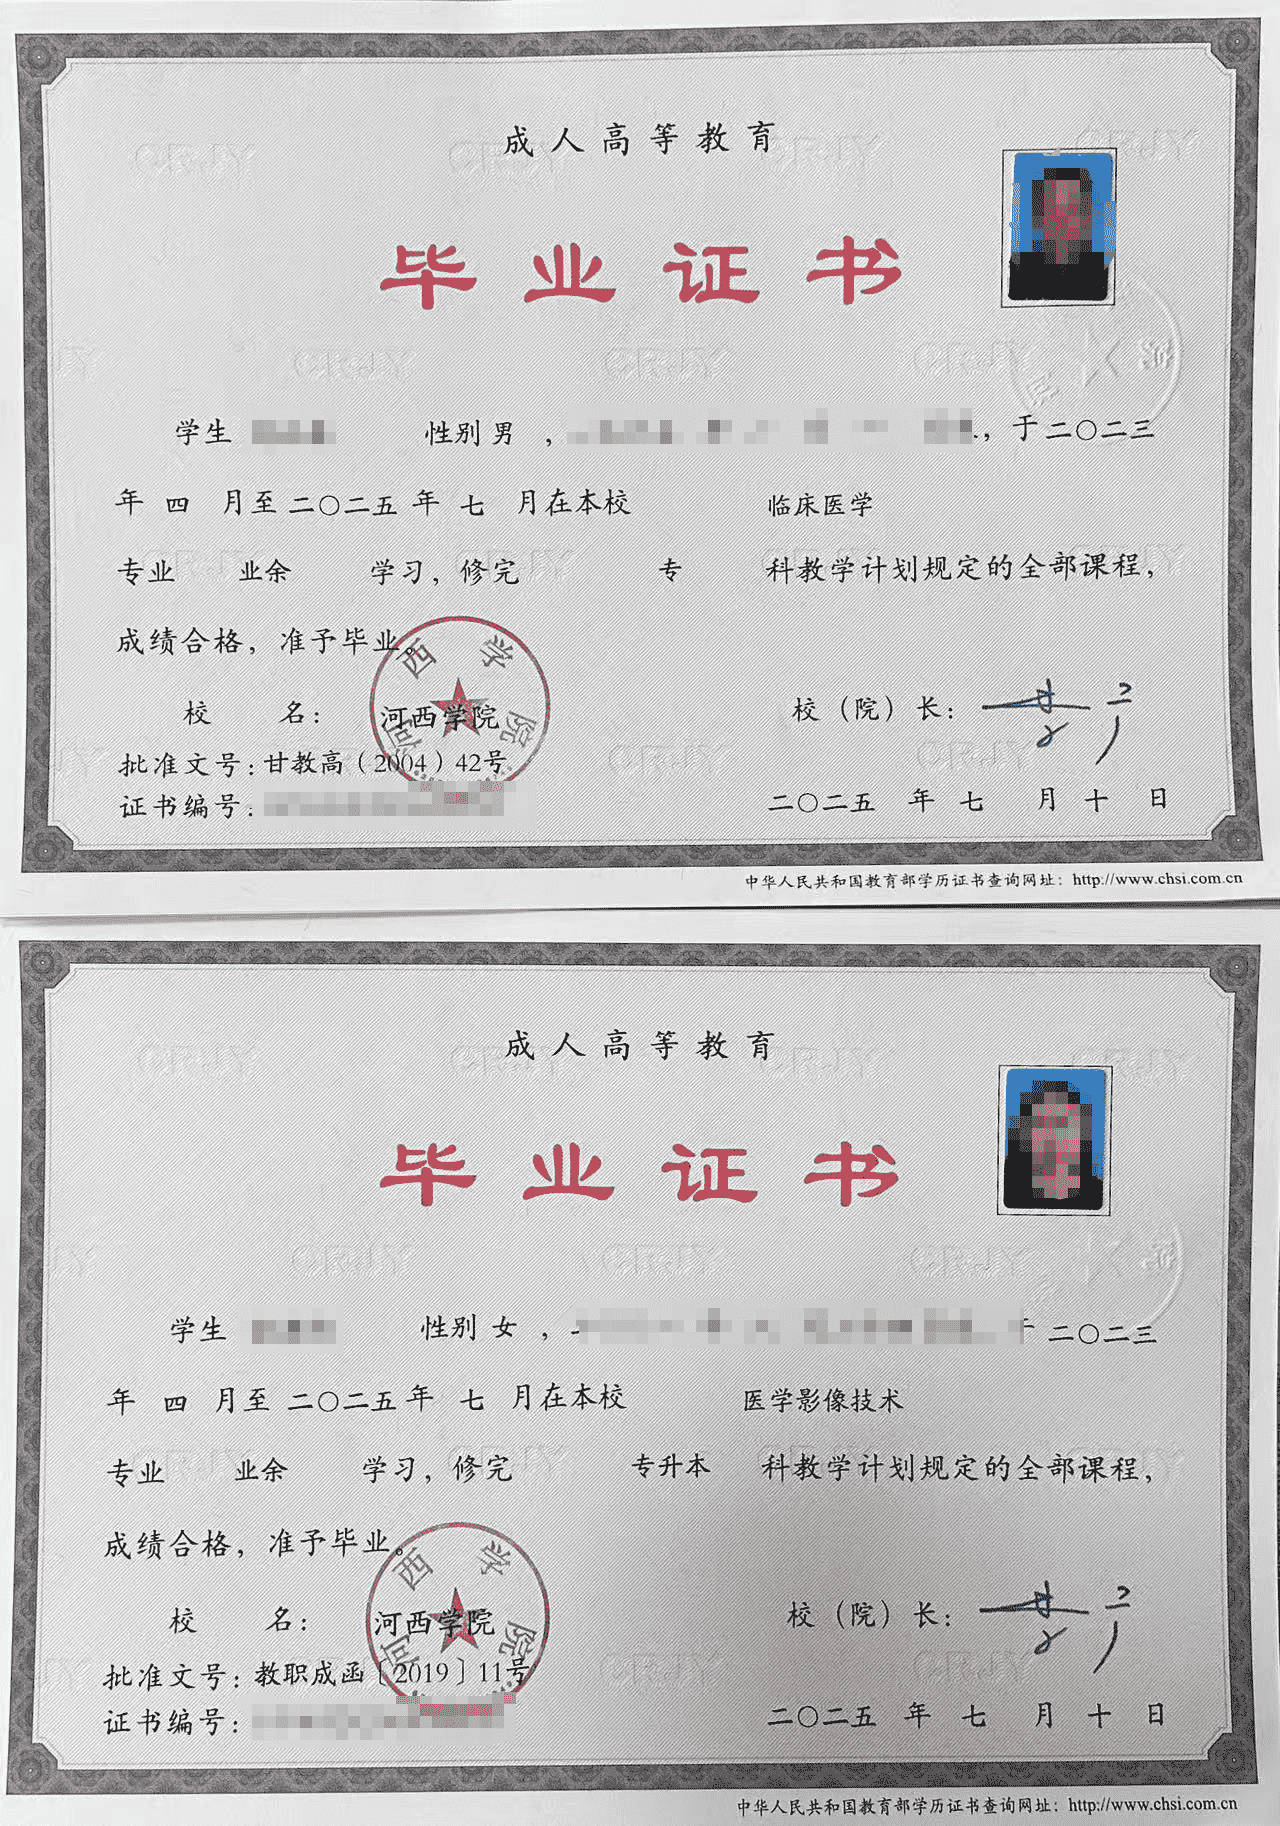 成人高等教育
毕业证书
学生 性别 男 ， ，于 二〇二三
年 四 月至 二〇二五 年 七 月在本校 临床医学
专业 业余 学习，修完 专 科教学计划规定的全部课程，
成绩合格，准予毕业。
校 名： 河西学院 校（院）长：
批准文号：甘教高（2004）42号
证书编号： 二〇二五 年 七 月 十 日
中华人民共和国教育部学历证书查询网址：http://www.chsi.com.cn
成人高等教育
毕业证书
学生 性别 女 ， 于 二〇二三
年 四 月至 二〇二五 年 七 月在本校 医学影像技术
专业 业余 学习，修完 专升本 科教学计划规定的全部课程，
成绩合格，准予毕业。
校 名： 河西学院 校（院）长：
批准文号：教职成函〔2019〕11号
证书编号： 二〇二五 年 七 月 十 日
中华人民共和国教育部学历证书查询网址：http://www.chsi.com.cn